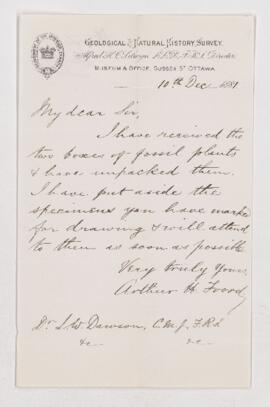 GEOLOGICAL & NATURAL HISTORY SURVEY.
Alfred R. C. Selwyn, L.L.D., F.R.S., Director.
MUSEUM & OFFICE, SUSSEX ST OTTAWA.
10th Dec 1881
My dear Sir,
I have received the
two boxes of fossil plants
& have unpacked them.
I have put aside the
specimens you have marked
for drawing & will attend
to them as soon as possible
Very truly Yours,
Arthur H. Foord,
Dr J. W. Dawson, C.M.G., F.R.S.
&c &c